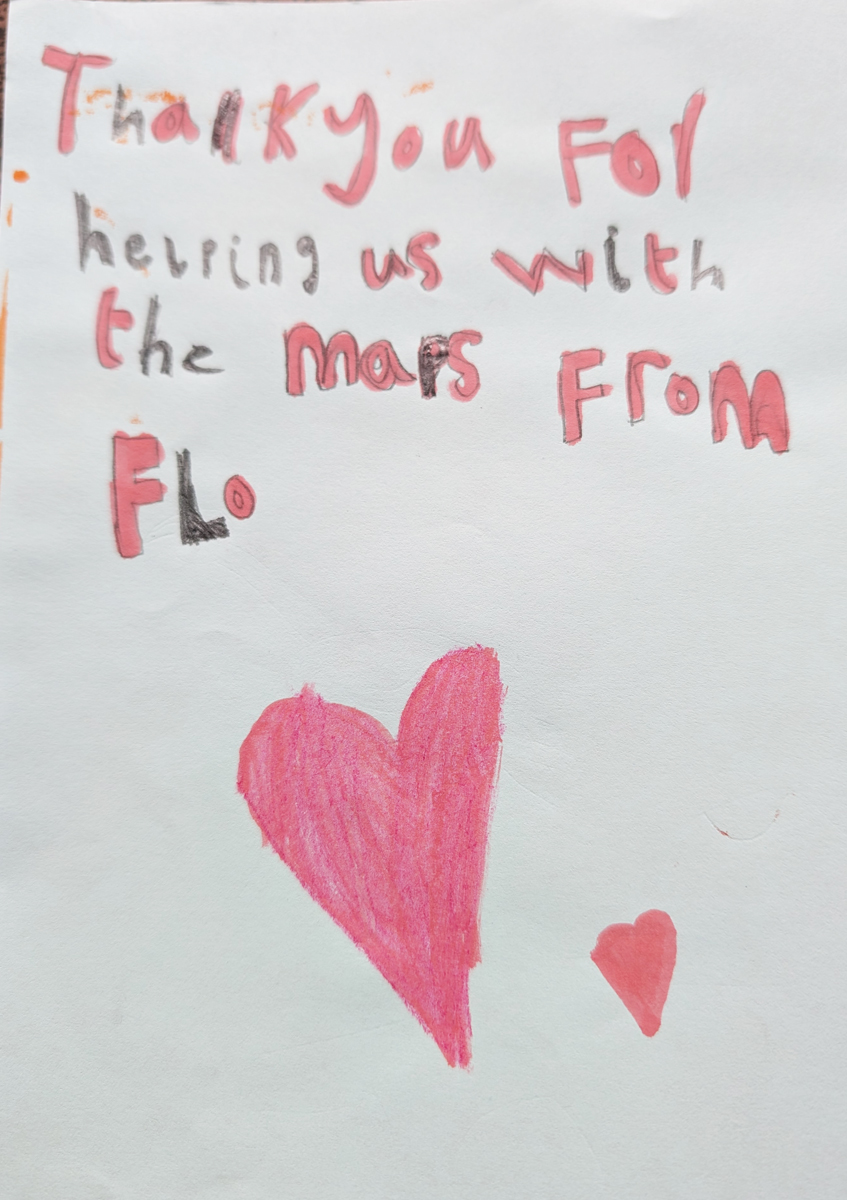 Thankyou For
helping us with
the maps From
FLo